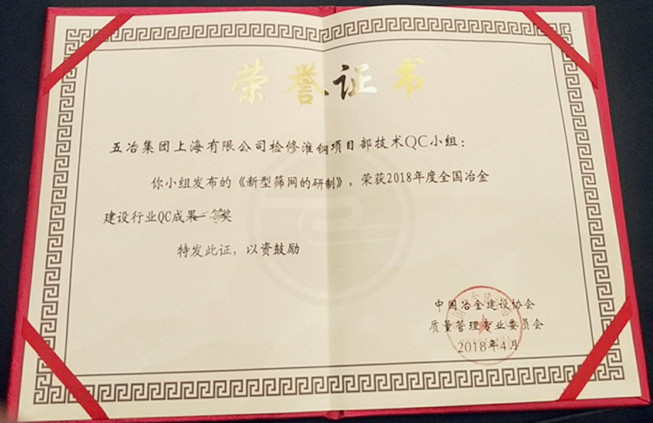 荣誉证书
五冶集团上海有限公司检修淮钢项目部技术QC小组：
你小组发布的《新型筛网的研制》，荣获2018年度全国冶金
建设行业QC成果一等奖
特发此证，以资鼓励
中国冶金建设协会
质量管理专业委员会
2018年4月